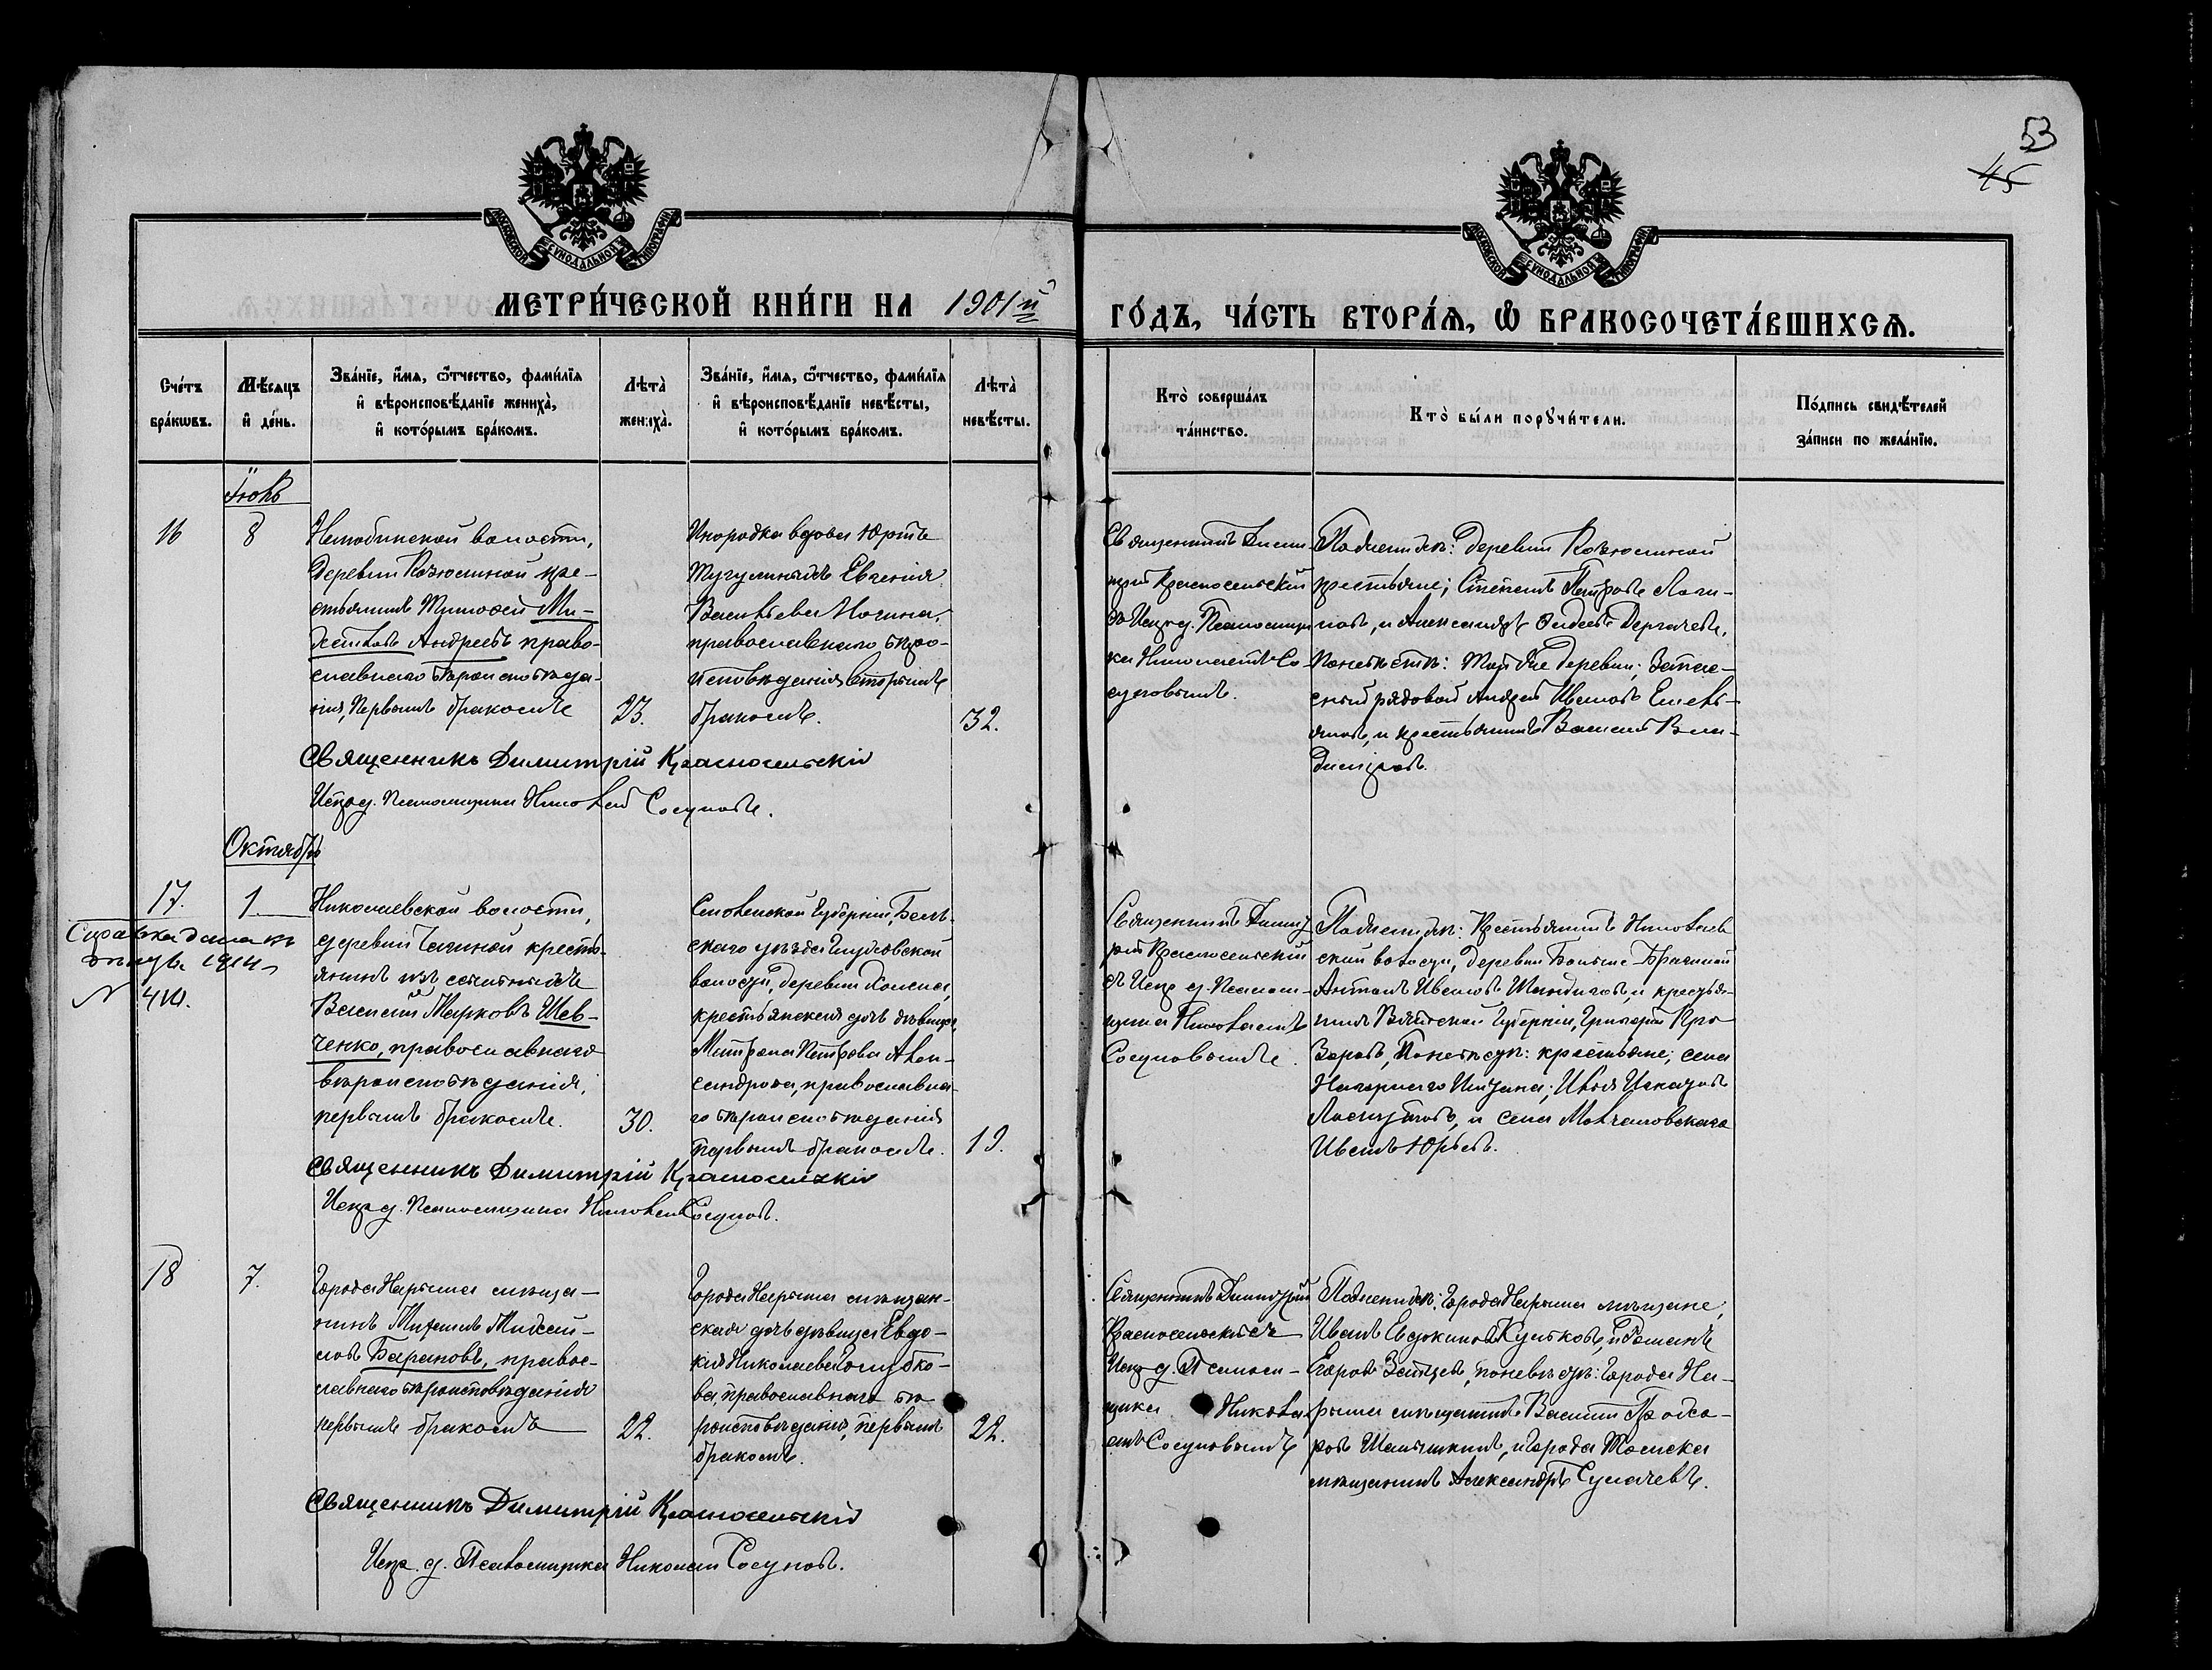 53
45
МОСКОВСКОЙ СѴНОДАЛЬНОЙ ТИПОГРАФІИ
МОСКОВСКОЙ СѴНОДАЛЬНОЙ ТИПОГРАФІИ
МЕТРИ́ЧЕСКОЙ КНИ́ГИ НА 1901й
ГО́ДЪ, ЧА́СТЬ ВТОРА́Ѧ, Ѡ БРАКОСОЧЕТА́ВШИХСѦ.
Сче́тъ
бра́кѡвъ.
Мѣ́сяцъ
и҆ де́нь.
Зва́нїе, и҆́мѧ, ѻ҆́тчество, фами́лїѧ
и҆ вѣроисповѣ́данїе жениха̀,
и҆ кото́рымъ бра́комъ.
Лѣта̀
жениха̀.
Зва́нїе, и҆́мѧ, ѻ҆́тчество, фами́лїѧ
и҆ вѣроисповѣ́данїе невѣ́сты,
и҆ кото́рымъ бра́комъ.
Лѣта̀
невѣ́сты.
Кто̀ соверша́лъ
та́инство.
Кто̀ бы́ли порꙋчи́тели.
По́дпись свидѣ́телей
за́писи по жела́нїю.
Іюль
16
8
Нелюбинской волости,
деревни Козюлиной кре-
стьянинъ Тимоѳей Ми-
хайловъ Андреевъ право-
славнаго вѣроисповѣда-
нія, Первымъ бракомъ
23.
Инородка вдова Юртъ
Евгенія
Васильева
православнаго вѣро-
исповѣданія вторымъ
бракомъ.
32.
Священникъ Димит-
рій Красносельскій
съ Испр. д. Псаломщи-
ка Николаемъ Со-
суновымъ.
По женихѣ: деревни Козюлиной
крестьяне; Степанъ Петровъ Логи-
новъ, и Александръ Дергачевъ,
По невѣстѣ: той же деревни; Запас-
сный рядовой Андрей Ивановъ Емель-
яновъ, и крестьянинъ Василій Вла-
диміровъ.
Священникъ Димитрій Красносельскій
Испр. д. Псаломщика Николай Сосуновъ.
Октябрь
17.
1.
Справка дана къ
1914
N 410.
Николаевской волости,
деревни Чагиной кресть-
янинъ изъ ссыльныхъ
Василій Марковъ Шев-
ченко, православнаго
вѣроисповѣданія,
первымъ бракомъ.
30.
Смоленской Губерніи, Бель-
скаго уѣзда
волости, деревни
крестьянская дочь дѣвица,
Матрона Петрова Алек-
сандрова, православна-
го вѣроисповѣданія
первымъ бракомъ.
19.
Священникъ Димит-
рій Красносельскій
съ Испр. д. Псалом-
щика Николаемъ
Сосуновымъ.
По женихѣ: Крестьянинъ Николаев-
ской волости, деревни Больше-Брагиной
Антонъ Ивановъ и крестья-
нинъ Вятской Губерніи, Григорій
По невѣстѣ: крестьяне; села
Нагорнаго Иштана; Илья
и села Молчановскаго
Иванъ Юрьевъ.
Священникъ Димитрій Красносельскій
Испр. д. Псаломщика Николай Сосуновъ.
18
7.
Города Нарыма мѣща-
нинъ Михаилъ Михай-
ловъ Барановъ, правос-
лавнаго вѣроисповѣданія
первымъ бракомъ
22.
Города Нарыма мѣщан-
ская дочь дѣвица Евдо-
кія Николаева Голубко-
ва, православнаго вѣ-
роисповѣданія, первымъ
бракомъ.
22.
Священникъ Димитрій
Красносельскій съ
Испр. д. Псалом-
щика Никола-
емъ Сосуновымъ
По женихѣ: Города Нарыма мѣщане,
Иванъ Евдокимовъ Кульковъ, и Романъ
Егоровъ Зайцевъ, по невѣстѣ: Города На-
рыма мѣщанинъ Василій Ѳедо-
ровъ и города Томска
мѣщанинъ Александръ Сулачевъ.
Священникъ Димитрій Красносельскій
Испр. д. Псаломщика Николай Сосуновъ.